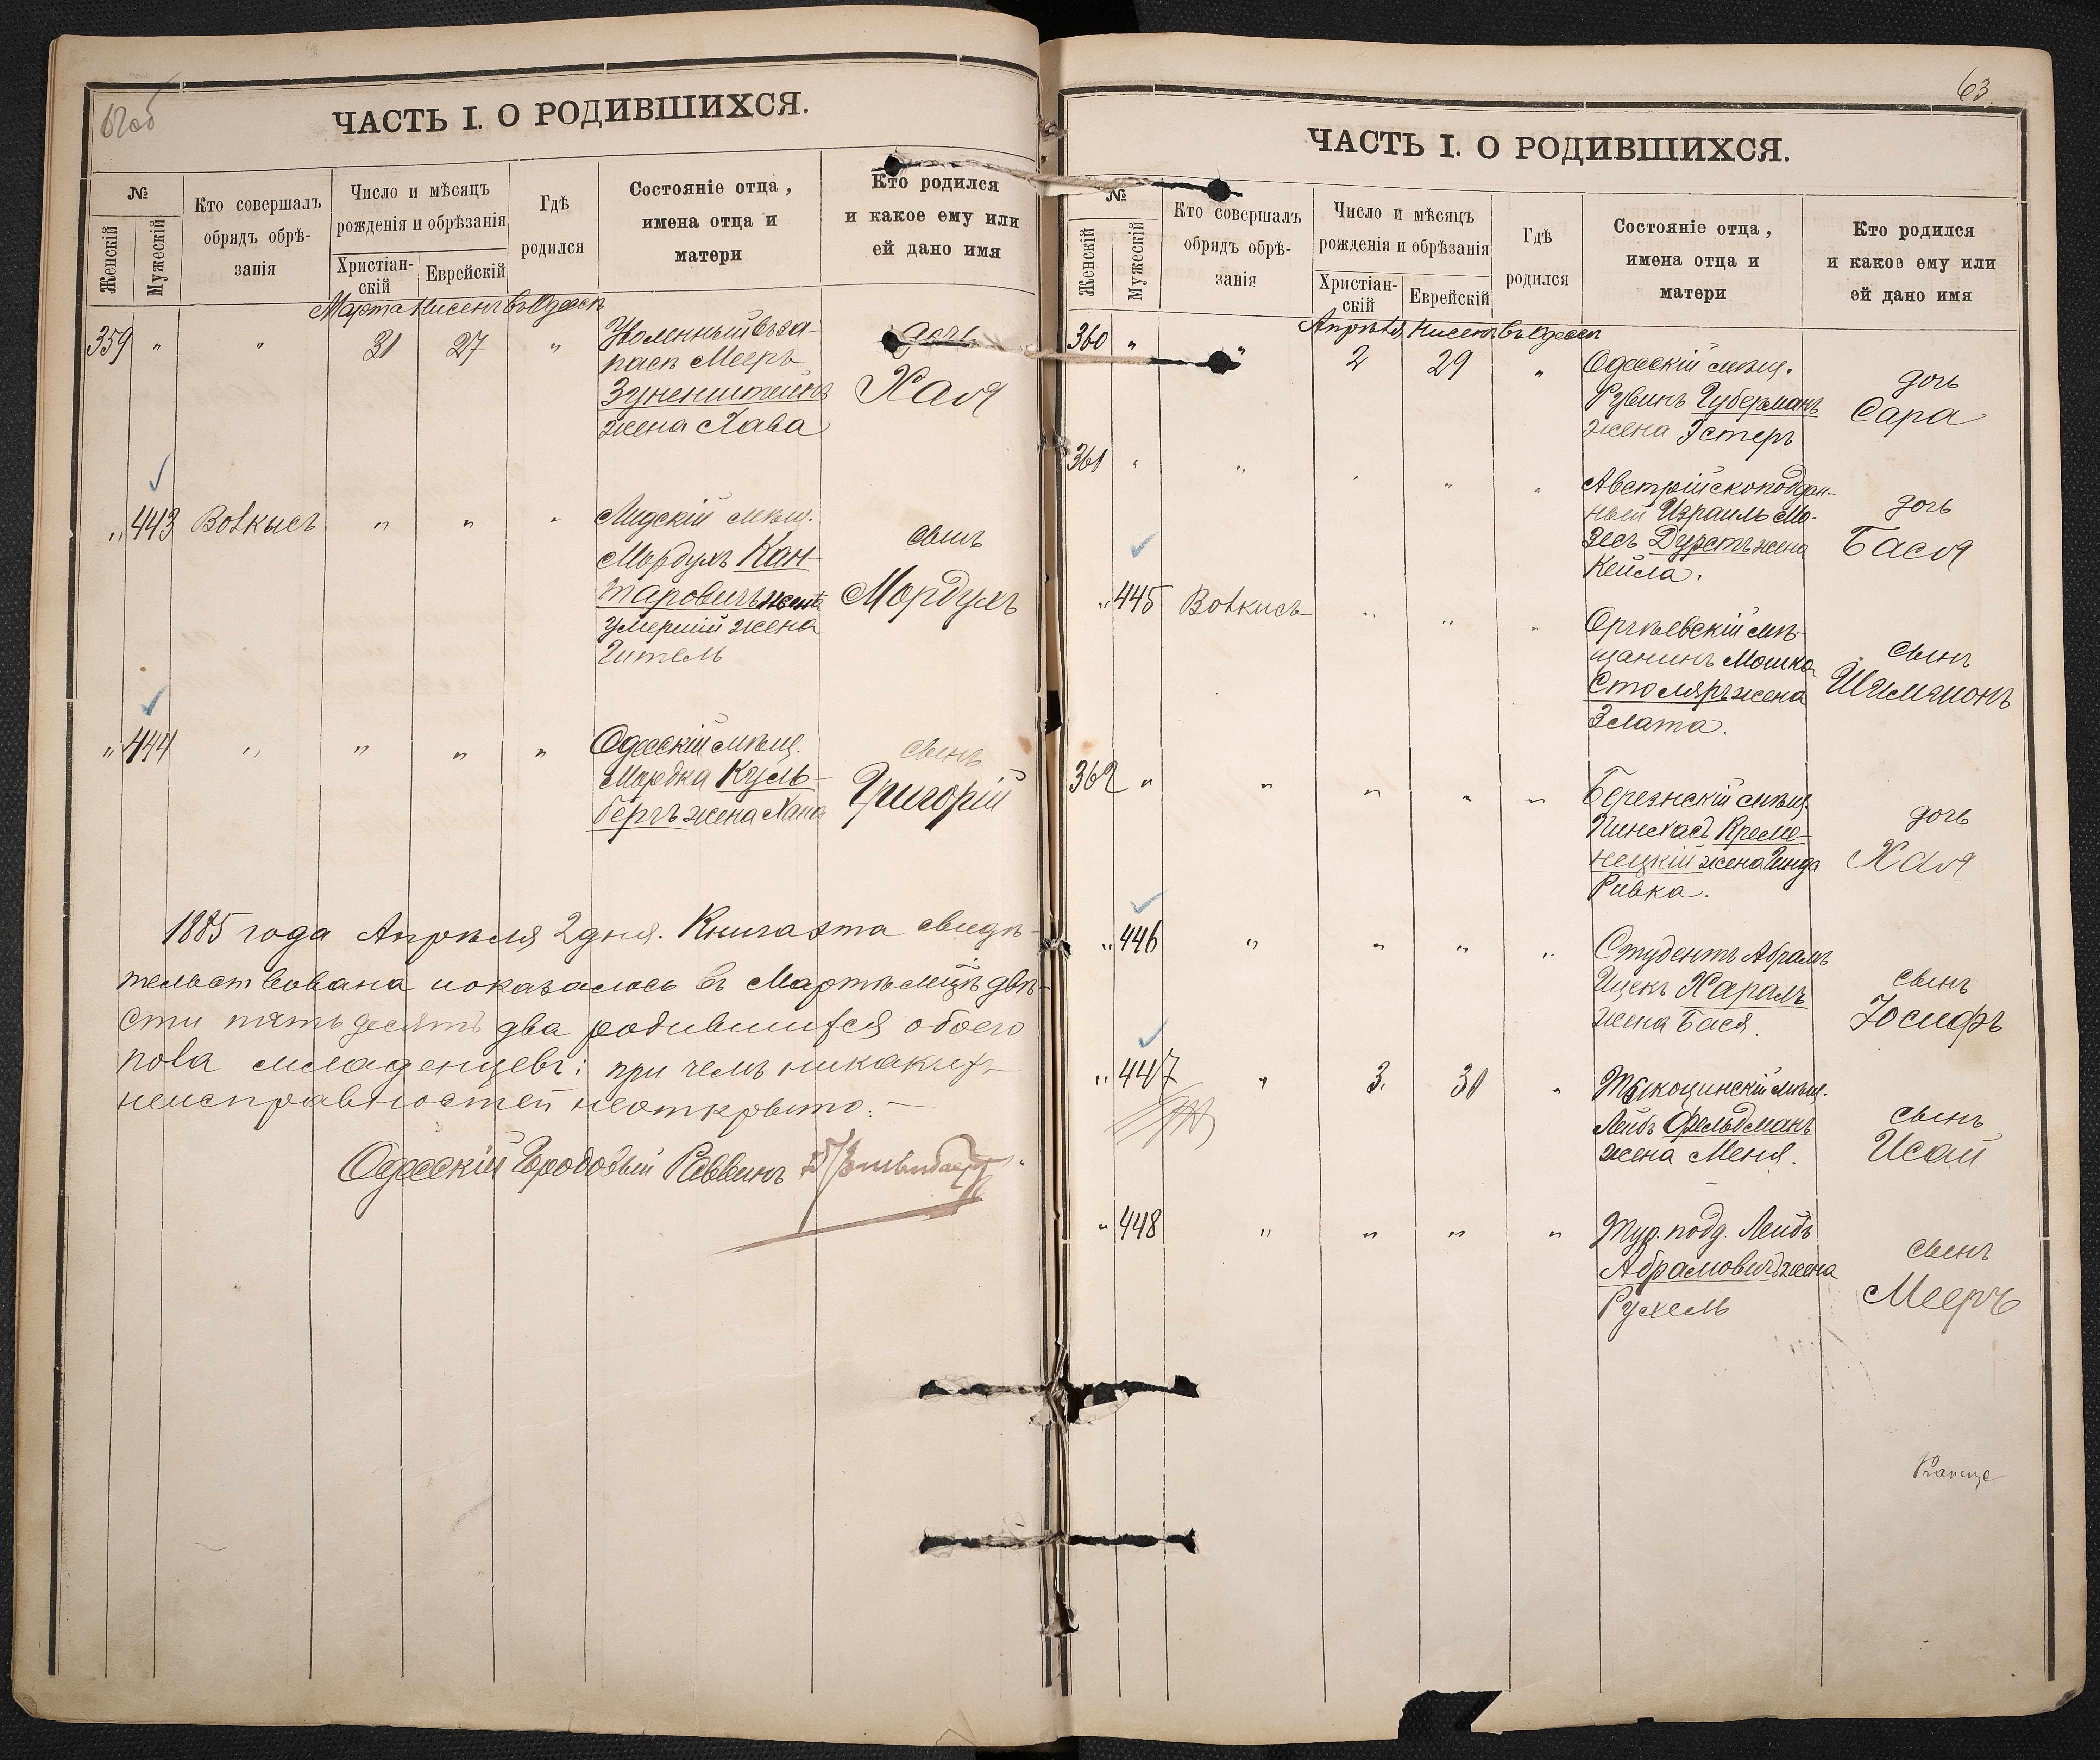 62об
ЧАСТЬ I. О РОДИВШИХСЯ.
№
Женскій
Мужескій
Кто совершалъ
обрядъ обрѣ-
занія
Число и мѣсяцъ
рожденія и обрѣзанія
Христіан-
скій
Еврейскій
Гдѣ
родился
Состояніе отца,
имена отца и
матери
Кто родился
и какое ему или
ей дано имя
Марта Нисенъ въ Одессѣ
359 " " 31 27 " Уволенный въ за-
пасъ Мееръ
Зуненштейнъ
жена Хава
дочь
Хая
" 443 Волкысъ " " " Лидскій мѣщ.
Мордухъ Кан-
таровичъ
умершій жена
Гитель
сынъ
Мордухъ
" 444 " " " " Одесскій мѣщ.
Мордка Куль-
бергъ жена Хана
сынъ
Григорій
1885 года Апрѣля 2 дня. Книга эта свидѣ-
тельствована и оказалось въ Мартѣ м-цѣ двѣ-
сти пятьдесятъ два родившихся обоего
пола младенцевъ; при чемъ никакихъ
неисправностей не открыто. —
Одесскій Городовый Раввинъ
63
ЧАСТЬ I. О РОДИВШИХСЯ.
№
Женскій
Мужескій
Кто совершалъ
обрядъ обрѣ-
занія
Число и мѣсяцъ
рожденія и обрѣзанія
Христіан-
скій
Еврейскій
Гдѣ
родился
Состояніе отца,
имена отца и
матери
Кто родился
и какое ему или
ей дано имя
Апрѣля Нисенъ въ Одессѣ
360 " " 2 29 " Одесскій мѣщ.
Рувинъ Губерманъ
жена Эстеръ
дочь
Сара
361 " " " " " Австрійскоподдан-
ный Израиль Мо-
зесъ Дурстъ жена
Кейла.
дочь
Бася
" 445 Волкисъ " " " Оргѣевскій мѣ-
щанинъ Мошко
Столяръ жена
Злата.
сынъ
Шлимонъ
362 " " " " " Березнскій мѣщ.
Пинхасъ Креме-
нецкій жена Гинда
Ривка.
дочь
Хая
" 446 " " " " Студентъ Абрамъ
Ицекъ Харалъ
жена Бася.
сынъ
Іосифъ
" 447 " 3. 30 " Тыкоцинскій мѣщ.
Лейбъ Фельдманъ
жена Меня.
сынъ
Исай
" 448 " " " " Тур. подд. Лейбъ
Абрамовичъ жена
Рухель
сынъ
Мееръ